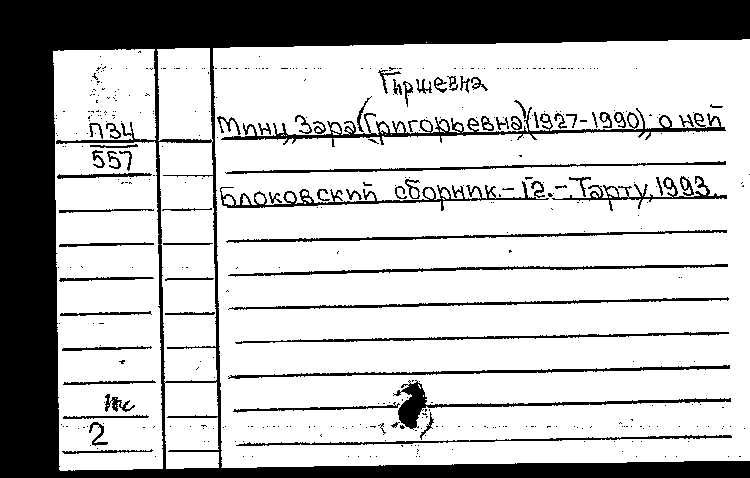 Гиршевна
ПЗЦ Минц, Зара (Григорьевна) (1927-1990); о ней
557
Блоковский сборник. - 12. - Тарту, 1993.
2